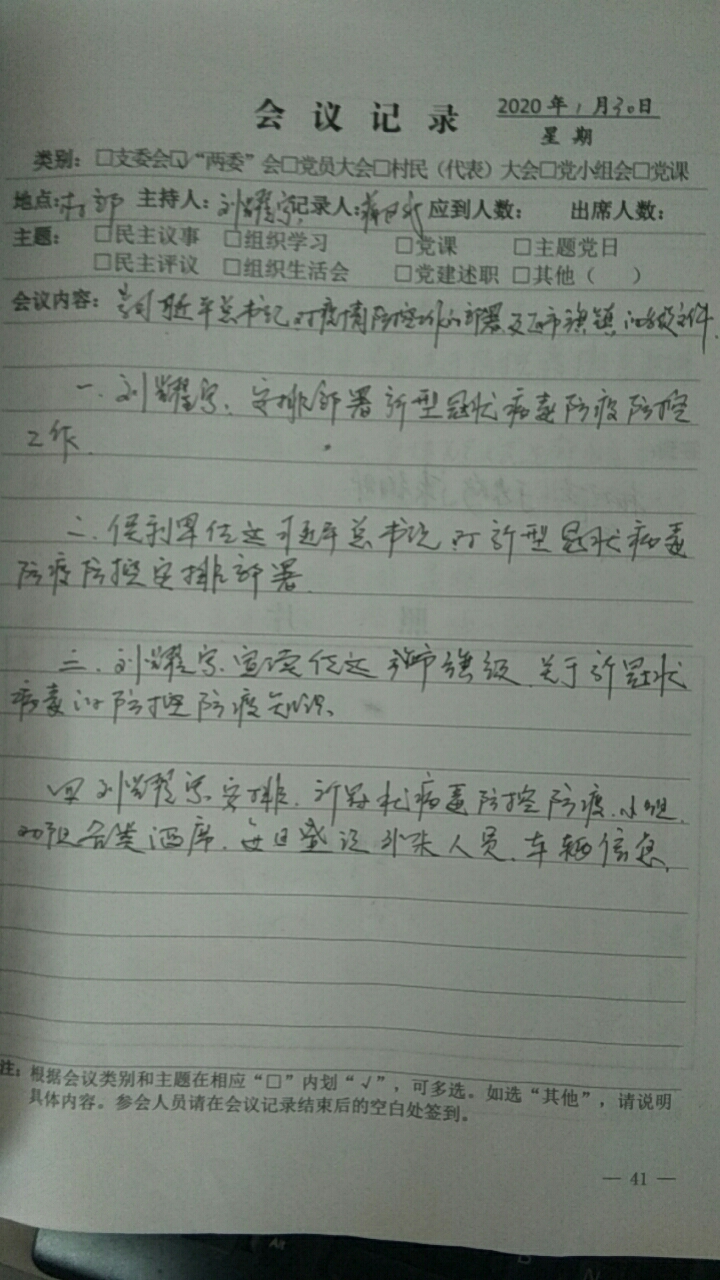 会议记录 2020年1月30日
星期
类别：□支委会☑“两委”会□党员大会□村民（代表）大会□党小组会□党课
地点：村部 主持人：刘耀宗 记录人： 应到人数： 出席人数：
主题：□民主议事 □组织学习 □党课 □主题党日
□民主评议 □组织生活会 □党建述职 □其他（ ）
会议内容：习近平总书记对疫情防控工作的部署及市旗镇文件.
一.刘耀宗.安排部署新型冠状病毒防疫防控
工作.
二.传达习近平总书记对新型冠状病毒
防疫防控安排部署.
三.刘耀宗.宣读传达 市旗级 关于新冠状
病毒的防控防疫知识、
四 刘耀宗 安排.新冠状病毒防控防疫.小组.
劝阻各类酒席.每日登记外来人员.车辆信息.
注：根据会议类别和主题在相应“□”内划“√”，可多选。如选“其他”，请说明
具体内容。参会人员请在会议记录结束后的空白处签到。
— 41 —
Alt
B